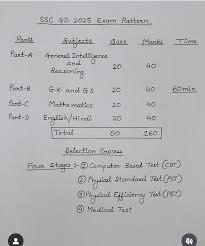 SSC GD 2025 Exam Pattern
Parts Subjects Ques Marks Time
Part-A General Intelligence and Reasoning 20 40
Part-B G.K and G.S 20 40 60min
Part-C Mathematics 20 40
Part-D English/Hindi 20 40
Total 80 160
Selection Process
Four Stages :- ① Computer Based Test (CBT)
② Physical Standard Test (PST)
③ Physical Efficiency Test (PET)
④ Medical Test